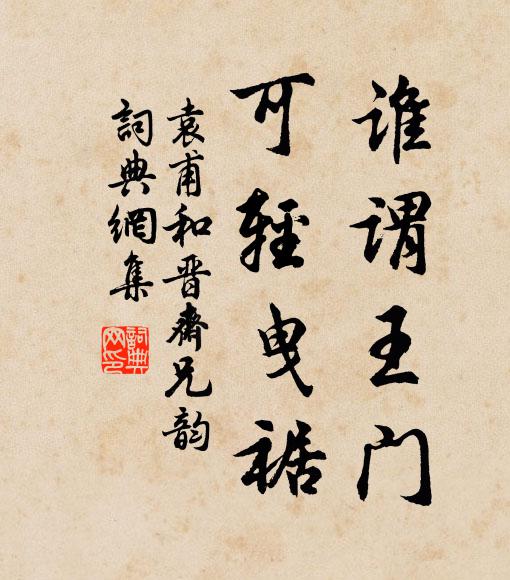 谁谓王门
可輕曳裾
袁甫和晋齋兄韵
詞典網集
詞典
网印